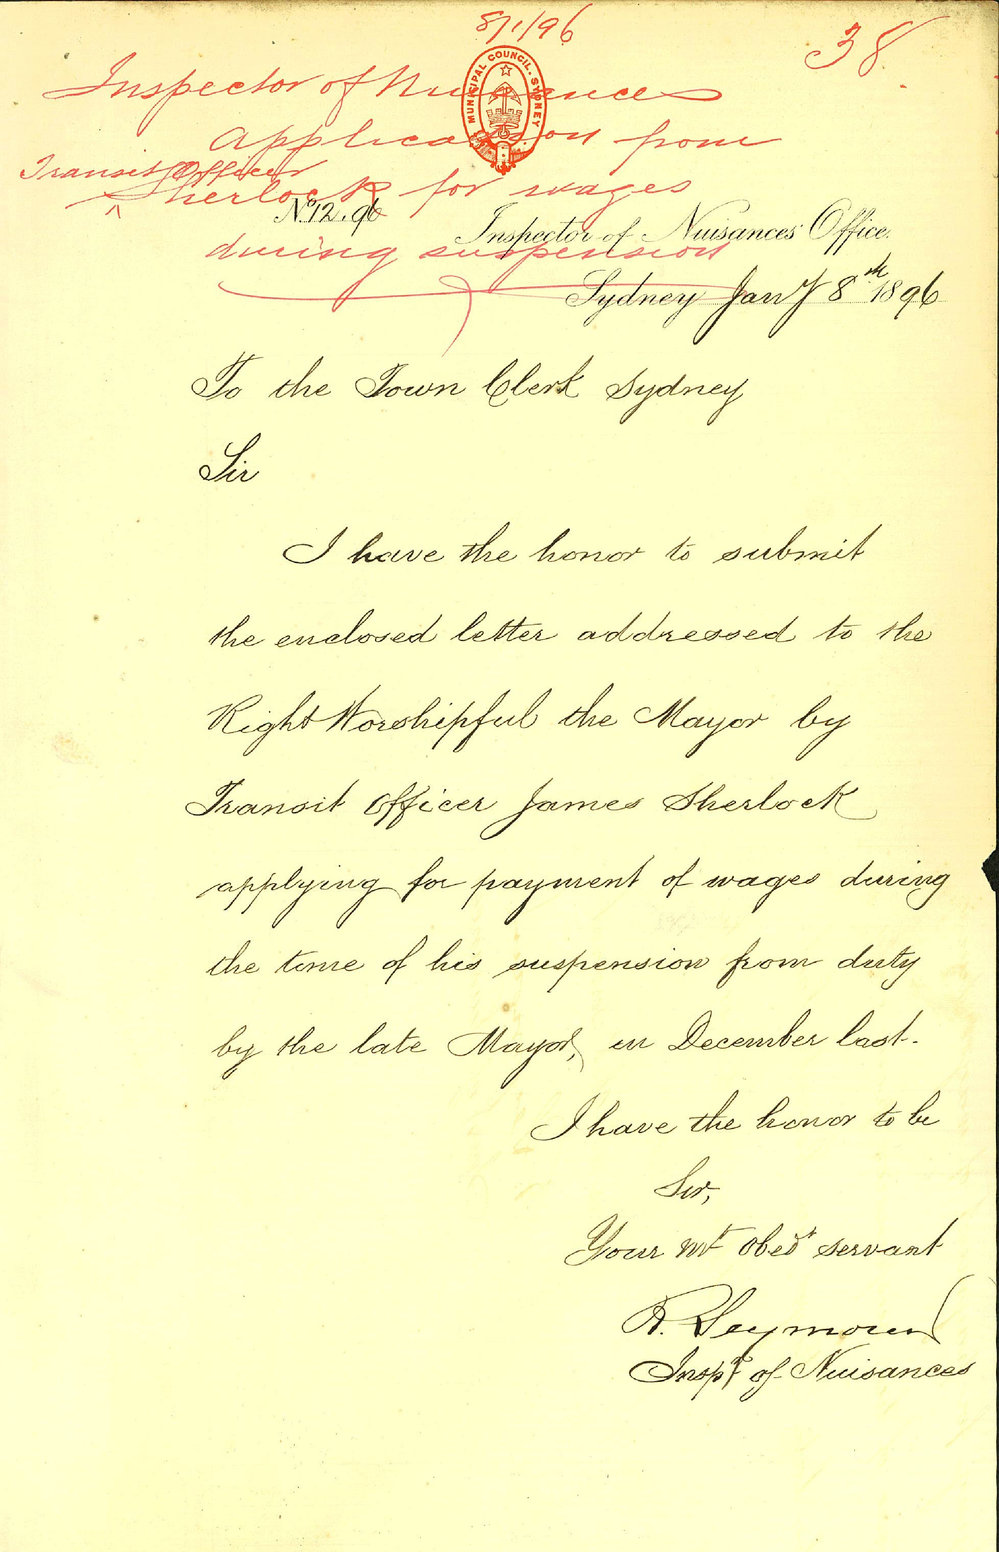 8/1/96
38
MUNICIPAL COUNCIL. SYDNEY
Inspector of Nuisances
Application from
Transit Officer
^ Sherlock for wages
during suspension
No. 12.96
Inspector of Nuisances' Office.
Sydney Jany 8th 1896
To the Town Clerk Sydney
Sir
I have the honor to submit
the enclosed letter addressed to the
Right Worshipful the Mayor by
Transit Officer James Sherlock
applying for payment of wages during
the time of his suspension from duty
by the late Mayor, in December last.
I have the honor to be
Sir,
Your Mt Obedt servant
R. Seymour
Inspr of Nuisances